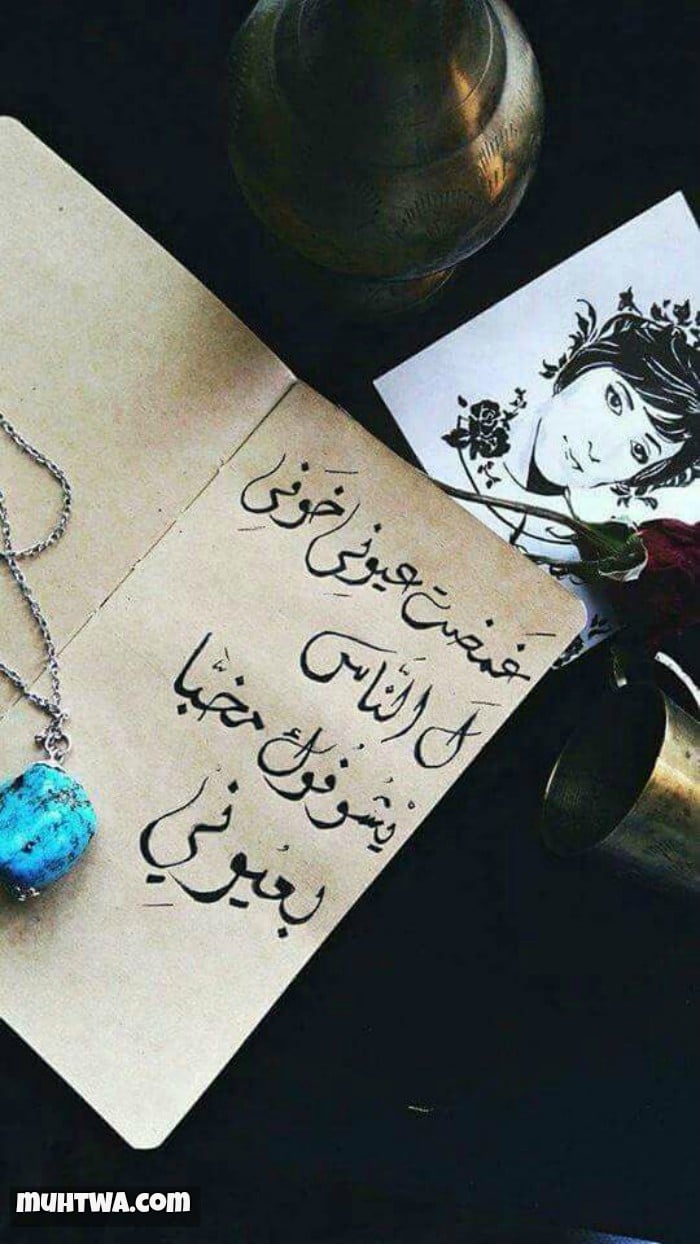 غَمضت عيوني خَوفي
لَ النَّاس
يْشُوفُوك مخبَّا
بعُيوني
MUHTWA.COM